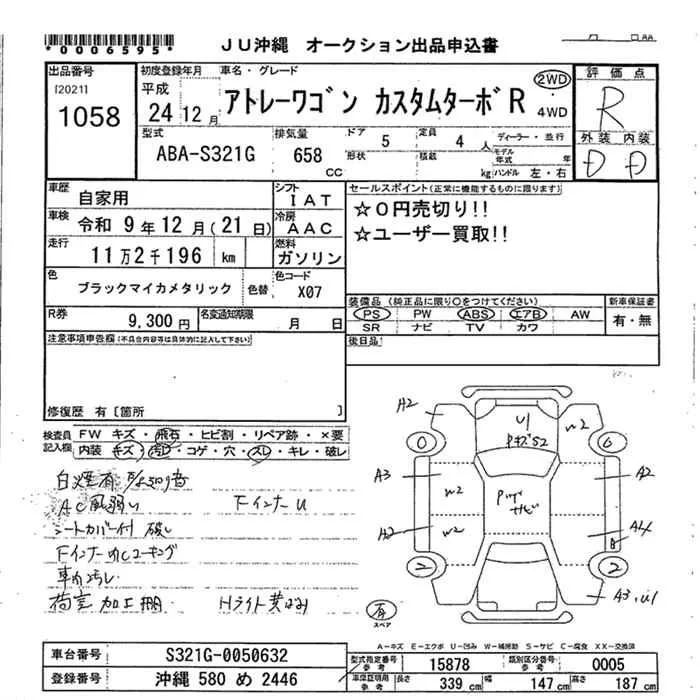 *0006595*
JU沖縄 オークション出品申込書
出品番号
[2021]
1058
初度登録年月
平成
24 12 月
車名・グレード
アトレーワゴン カスタムターボR
2WD
・
4WD
評価点
R
外装 内装
D D
型式
ABA-S321G
排気量
658 CC
ドア 5
形状
定員 4 人
積載 kg
ディーラー・並行
モデル年式 年
ハンドル 左・右
車歴
自家用
シフト
IAT
車検
令和 9 年 12 月 (21 日)
冷房
AAC
走行
11万2千196 km
燃料
ガソリン
色
ブラックマイカメタリック
色替
色コード
X07
R券
9,300 円
名変通知期限
月 日
セールスポイント(正常に機能するものに限ります)
☆0円売切り!!
☆ユーザー買取!!
装備品 (純正品に限り○をつけてください)
PS PW ABS エアB AW
SR ナビ TV カワ
新車保証書
有・無
後日品
注意事項申告欄(不具合内容等は具体的に記入して下さい)
修復歴 有 [箇所 ]
検査員記入欄
FW キズ・飛石・ヒビ割・リペア跡・×要
内装 キズ・汚レ・コゲ・穴・スレ・キレ・破レ
白煙有
AC風弱い
FインナーU
シートカバー付 破レ
Fインナーucコーキング
車内汚レ
荷室 加工棚
Hライト黄ばみ
A2
U1
W2
A3
W2
A2
W2
A2
A4
B
A3,U1
0
2
2
有
スペア
A-キズ E-エクボ U-凹み W-補修跡 S-サビ C-腐食 XX-交換済
車台番号
S321G-0050632
登録番号
沖縄 580 め 2446
型式指定番号
参考
15878
類別区分番号
参考
0005
車庫証明用
参考
長さ
339 cm
幅
147 cm
高さ
187 cm